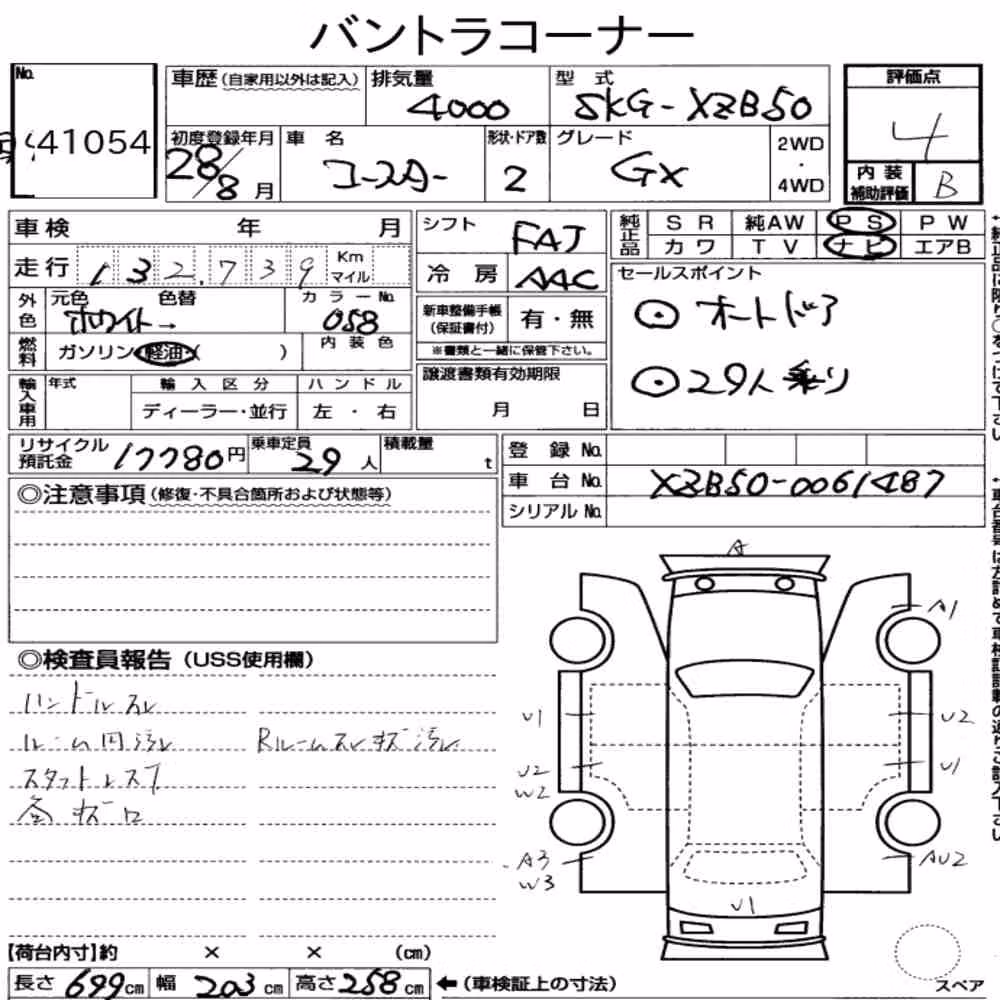 バントラコーナー
No. 41054
車歴(自家用以外は記入) 排気量 4000 型式 SKG-XZB50 評価点 4
初度登録年月 28/8月 車名 コースター 形状・ドア数 2 グレード GX 2WD・4WD 内装補助評価 B
車検 年 月 シフト FAJ 純正品 SR 純AW PS PW
カワ TV ナビ エアB
走行 132,739 Km マイル 冷房 AAC セールスポイント
外色 元色 ホワイト→ 色替 カラーNo. 058 新車整備手帳(保証書付) 有・無 ⊙オートドア
燃料 ガソリン・軽油・( ) 内装色 ※書類と一緒に保管下さい。
輸入車用 年式 輸入区分 ハンドル 譲渡書類有効期限 ⊙29人乗り
ディーラー・並行 左・右 月 日
リサイクル預託金 17780円 乗車定員 29人 積載量 t 登録No.
車台No. XZB50-0061487
シリアルNo.
◎注意事項(修復・不具合箇所および状態等)
A
A1
◎検査員報告(USS使用欄)
ハンドルスレ
U1 U2
ルーム内汚レ Rルームスレキズ汚レ
U2 U1
W2
スタットレス
A3 AU2
W3
U1
【荷台内寸】約 × × (cm)
長さ 699cm 幅 203cm 高さ 258cm ←(車検証上の寸法) スペア